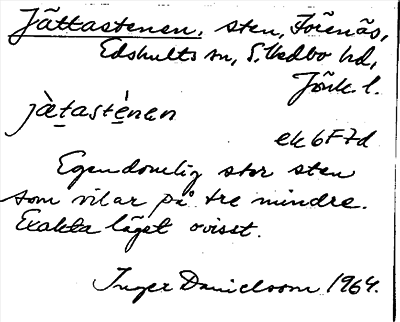 Jättastenen, sten, Förenäs,
Edshults sn, S. Vedbo hd,
Jönk. l.
jὰt̲astè̲nan
ek 6F7d
Egendomlig stor sten
som vilar på tre mindre.
Exakta läget ovisst.
Inger Danielsson 1964.